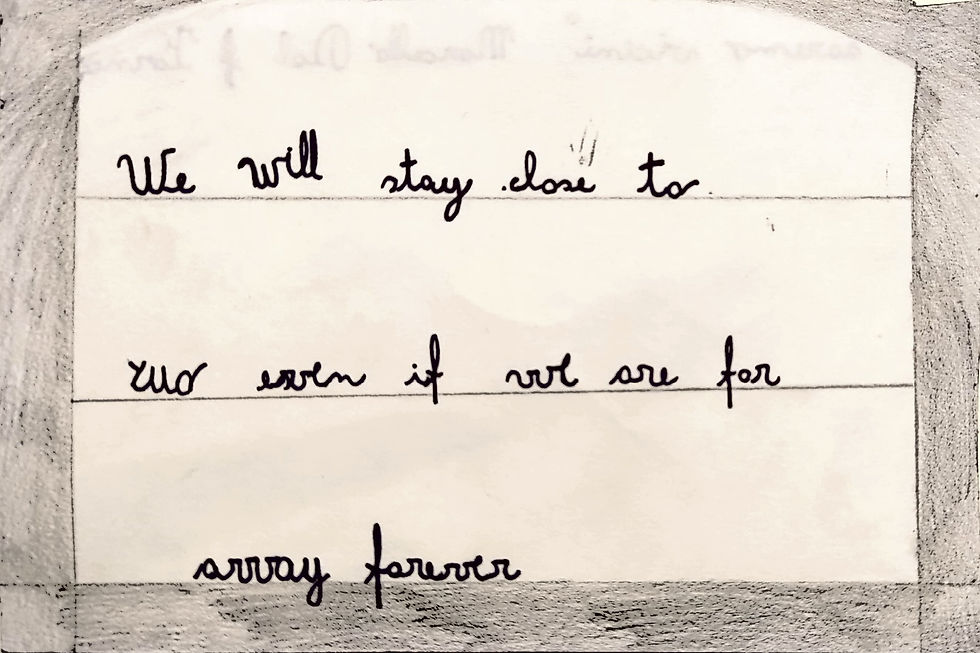 We will stay close to
even if we are far
away forever